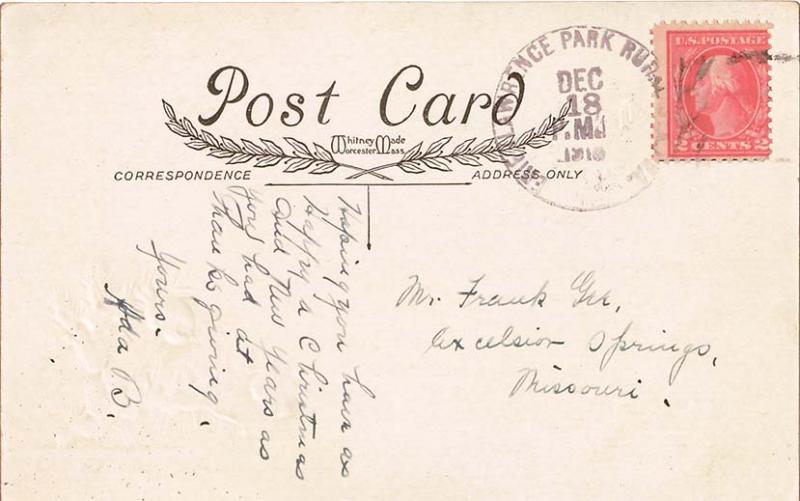 Post Card
Whitney Made
Worcester Mass
CORRESPONDENCE
ADDRESS ONLY
LAWRENCE PARK RURAL
DEC
18
P.M.
U.S. POSTAGE
2 CENTS 2
Hoping you have as
Happy a Christmas
And New Years as
you had at
Thanksgiving.
Yours.
Ada B.
Mr. Frank Gee,
Excelsior Springs,
Missouri.